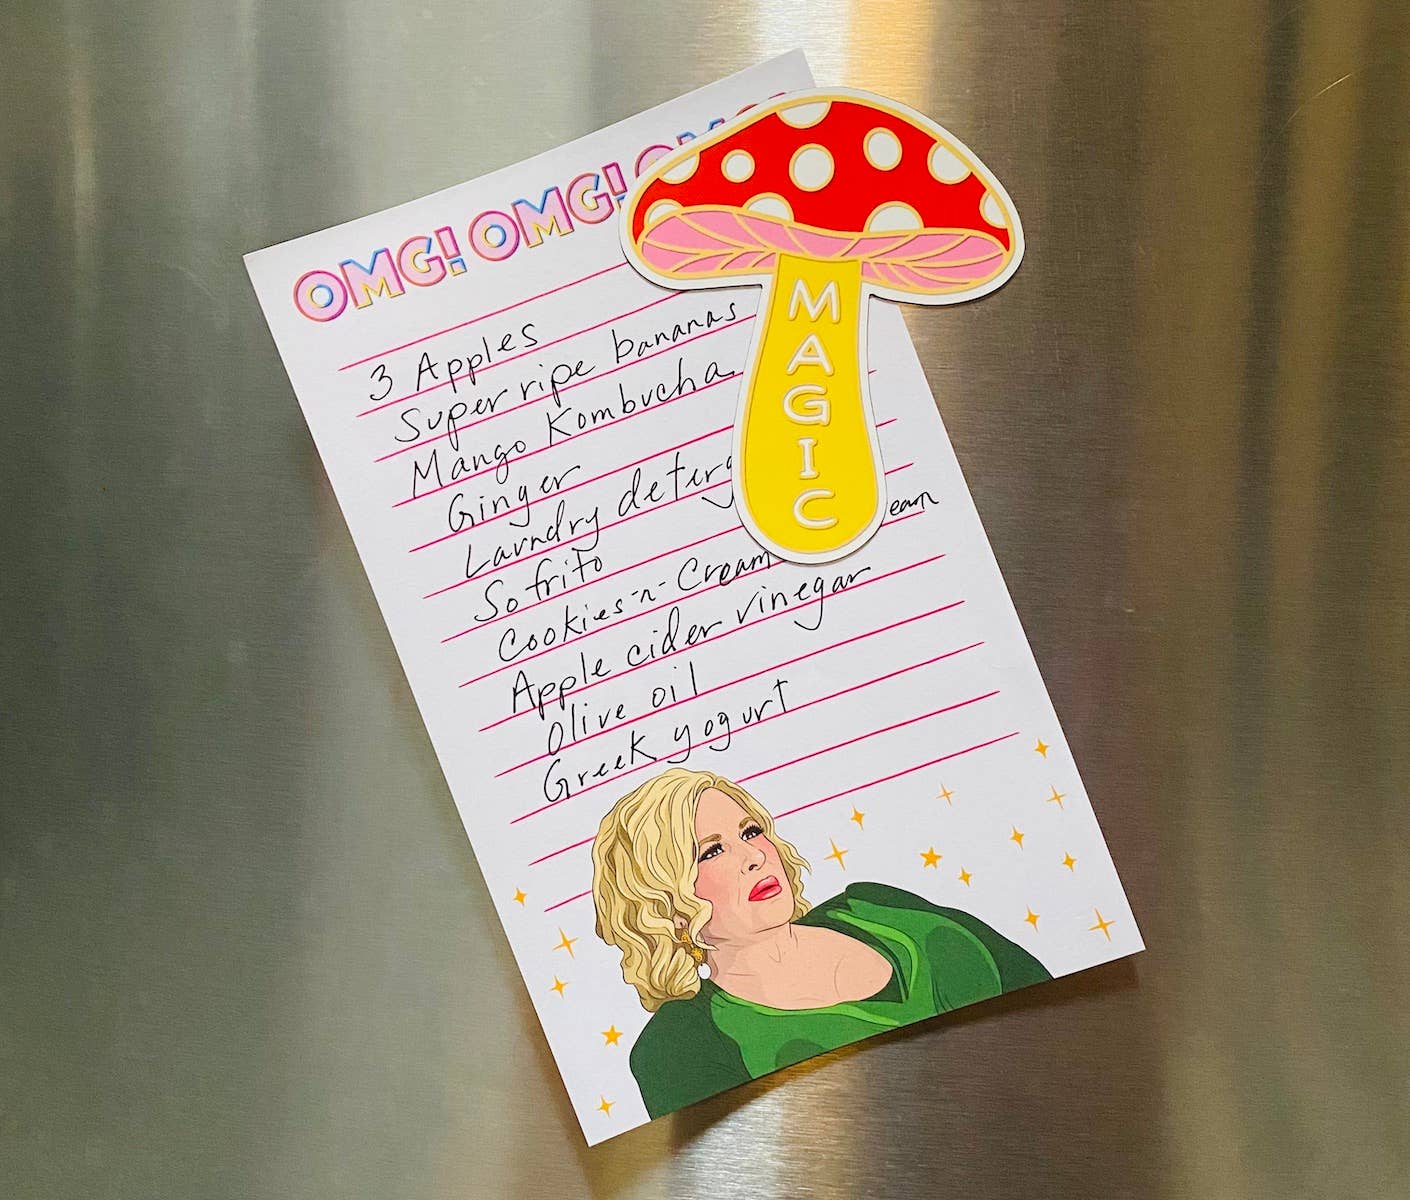 OMG! OMG!
MAGIC
3 Apples
Super ripe bananas
Mango Kombucha
Ginger
Laundry
Sofrito
Cookies-n-Cream
Apple cider vinegar
Olive oil
Greek yogurt